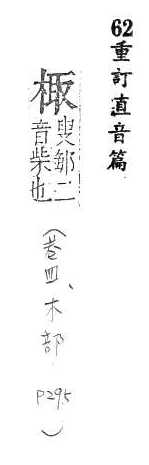 62重訂直音篇
棷
叟鄒二
音柴也
（卷四、木部 P295）